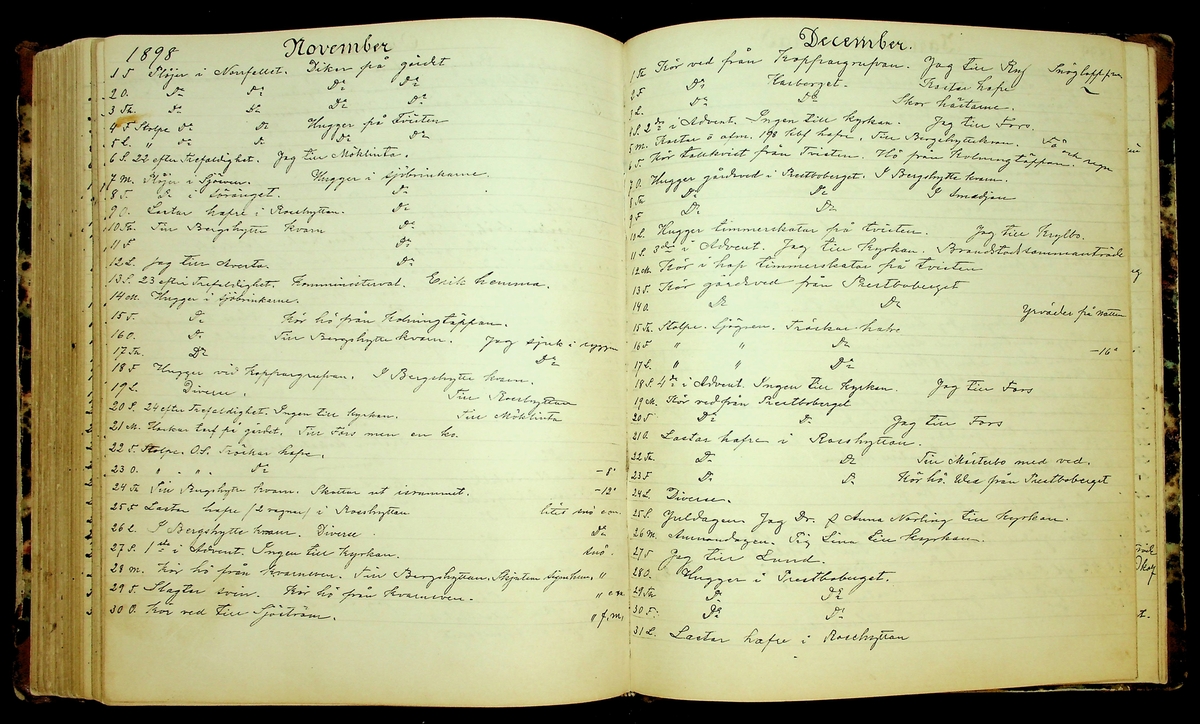 1898 November
1 T. Plöjer i Norrfallet. Diker på gärdet
2 O. Do Do Do Do
3 Th. Do Do Do Do
4 F. Stolpe Do Do Hugger på Tvisten
5 L. " Do Do Do Do
6 S. 22 efter Trefaldighet. Jag till Möklinta.
7 M. Plöjer i Sjöänen. Hugger i Sjöbrinkarne.
8 T. Do i Söränget. Do
9 O. Lastar hafre i Roeshyttan. Do
10 Th. Till Bergshytte kvarn Do
11 F. Do
12 L. Jag till Avesta. Do
13 S. 23 efter Trefaldighet. Komministerval. Erik hemma.
14 M. Hugger i Sjöbrinkarne.
15 T. Do Kör hö från Holmingtäppan.
16 O. Do Till Bergshytte kvarn. Jag sjuk i ryggen
17 Th. Do Do
18 F. Hugger vid Koppargrufvan. I Bergshytte kvarn.
19 L. Diverse. Till Roeshyttan
20 S. 24 efter Trefaldighet. Ingen till kyrkan. Till Möklinta
21 M. Harkar torf på gärdet. Till Fors men en ko.
22 T. Stolpe. O.S. Tröskar hafre.
23 O. " " " Do -8°
24 Th. Till Bergshytte kvarn. Skottar ut isrummet. -12°
25 F. Lastar hafre (2 vagnar) i Roeshyttan litet snö e.m.
26 L. I Bergshytte kvarn. Diverse. Do
27 S. 1sta i Advent. Ingen till kyrkan. snö.
28 M. Kör hö från kvarneven. Till Bergshyttan. "
29 T. Slagter svin. Kör hö från Kvarneven. " e.m.
30 O. Kör ved till Sjöström. " f.m.
December.
1 Th. Kör ved från Koppargrufvan. Jag till Snöglopp
2 F. Do Karberget. Lastar hafre
3 L. Do Do Skor hästarne.
4 S. 2dra i Advent. Ingen till kyrkan. Jag till Fors.
5 M. Lastar ö alm. 198 hafre, Till Bergshyttekvarn.
6 T. Kör tallkvist från Tvisten. Hö från Holmingtäppan. regn
7 O. Hugger gårdsved i Prestboberget. I Bergshytte kvarn.
8 Th. Do Do I Smedjan
9 F. Do Do
10 L. Hugger timmerskatar på tvisten. Jag till Krylbo.
11 S. 3dje i Advent. Jag till kyrkan. Brandstodssammanträde
12 M. Kör i hop timmerskatar på tvisten
13 T. Kör gårdsved från Prestboberget
14 O. Do Do Yrväder på natten
15 Th. Stolpe. Sjögren. Tröskar hafre
16 F. " " Do -16°
17 L. " " Do
18 S. 4de i Advent. Ingen till kyrkan. Jag till Fors
19 M. Kör ved från Prestboberget
20 T. Do Do Jag till Fors
21 O. Lastar hafre i Roeshyttan.
22 Th. Do Do Till Mästerbo med ved.
23 F. Do Do Kör hö. Ved från Prestboberget
24 L. Diverse.
25 S. Juldagen. Jag Dr. & Anna Norling till kyrkan.
26 M. Annandagen. Pig Lina till kyrkan.
27 T. Jag till Lund.
28 O. Hugger i Prestboberget.
29 Th. Do Do
30 F. Do Do
31 L. Lastar hafre i Roeshyttan